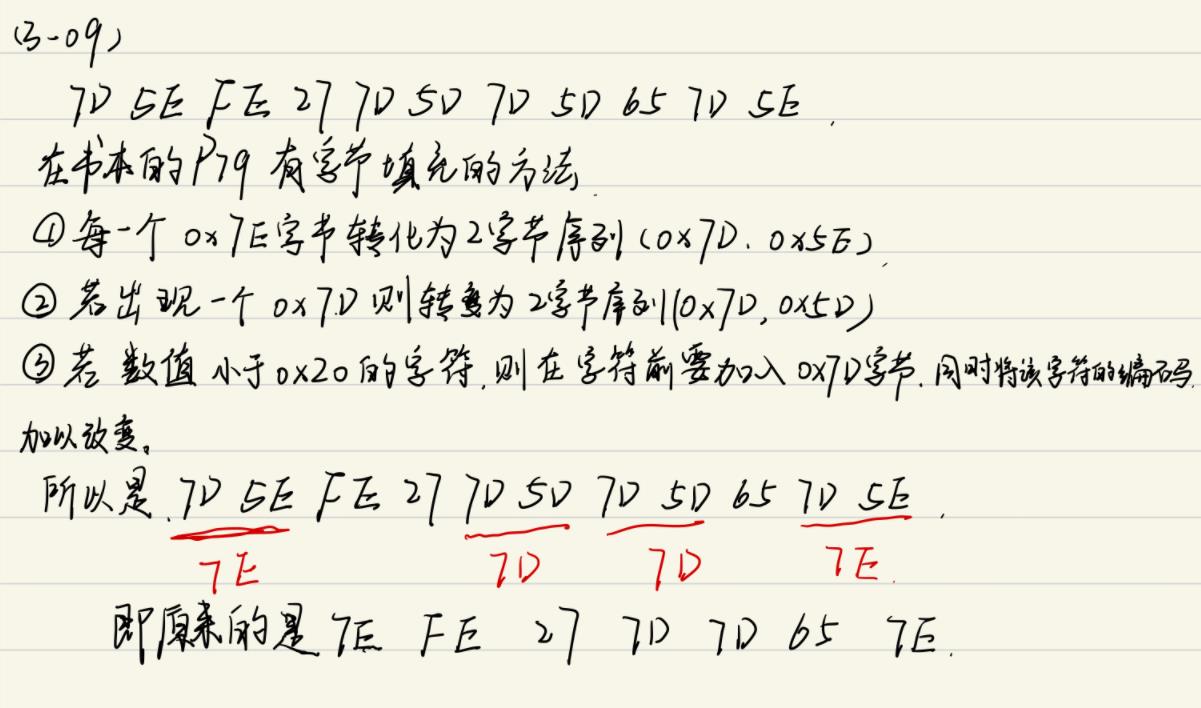 (3-09)
7D 5E FE 27 7D 5D 7D 5D 65 7D 5E.
在书本的P79 有字节填充的方法.
①每一个 0x7E字节转化为2字节序列(0x7D. 0x5E).
② 若出现一个 0x7D 则转变为 2字节序列(0x7D, 0x5D)
③若 数值 小于0x20的字符,则在字符前要加入 0x7D字节.同时将该字符的编码
加以改变。
所以是. 7D 5E FE 27 7D 5D 7D 5D 65 7D 5E.
7E 7D 7D 7E.
即原来的是 7E FE 27 7D 7D 65 7E.